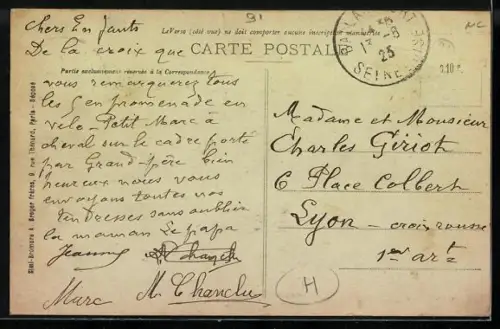 91
Chers Enfants
Le Verso (côté vue) ne doit comporter aucune inscription manuscrite
De la croix que
CARTE POSTALE
Partie exclusivement réservée à la Correspondance.
vous remarquerez tous
les gens promenade en
velo - Petit Marc à
cheval sur le cadre porté
par Grand-père bien
heureux nous vous
envoyons toutes nos
tendresses sans oublier
la maman le papa
Jeanne
Marc M. Chanclu
25
SEINE
Madame et Monsieur
Charles Giriot
6 Place Colbert
Lyon - croix rousse
1er art
H